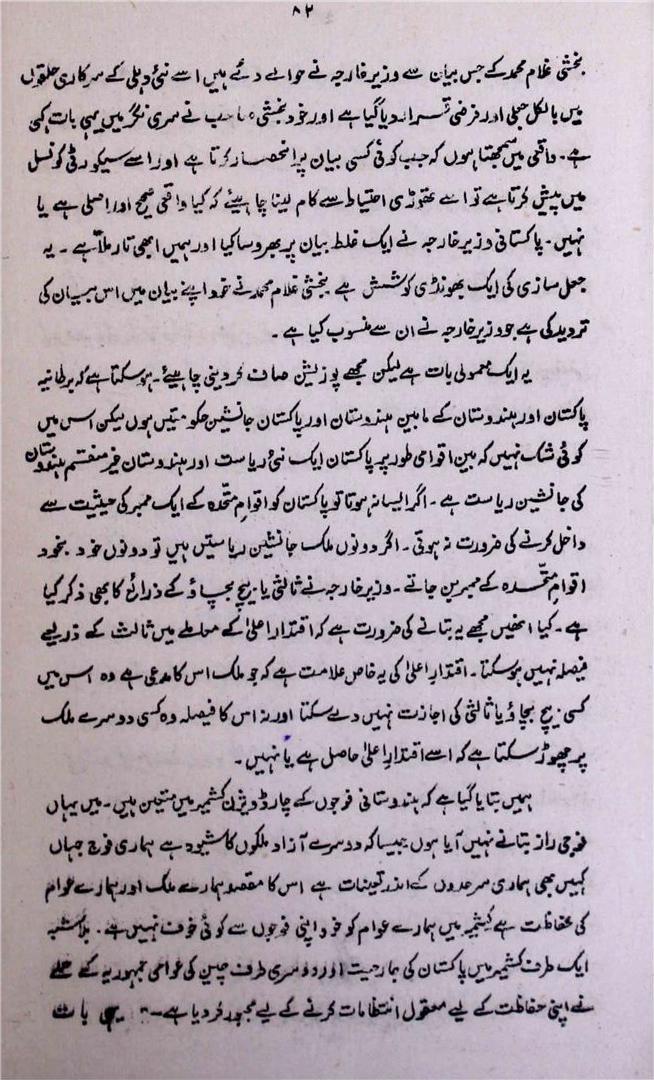 ۸۲
بخشی غلام محمد کے جس بیان سے وزیر خارجہ نے حوالے دئے ہیں اسے نئی دہلی کے سرکاری حلقوں
میں بالکل جعلی اور فرضی قرار دیا گیا ہے اور خود بخشی صاحب نے سری نگر میں یہی بات کہی
ہے۔ واقعی میں سمجھتا ہوں کہ جب کوئی کسی بیان پر انحصار کرتا ہے اور اسے سیکورٹی کونسل
میں پیش کرتا ہے تو اسے تھوڑی احتیاط سے کام لینا چاہیئے کہ کیا واقعی صحیح اور اصلی ہے یا
نہیں۔ پاکستانی وزیر خارجہ نے ایک غلط بیان پر بھروسا کیا اور ہمیں ابھی تار ملا ہے۔ یہ
جعل سازی کی ایک بھونڈی کوشش ہے بخشی غلام محمد نے خود اپنے بیان میں اس بیان کی
تردید کی ہے جو وزیر خارجہ نے ان سے منسوب کیا ہے۔
یہ ایک معمولی بات ہے لیکن مجھے پوزیشن صاف کر دینی چاہیئے۔ ہو سکتا ہے کہ برطانیہ
پاکستان اور ہندوستان کے مابین ہندوستان اور پاکستان جانشین حکومتیں ہوں لیکن اس میں
کوئی شک نہیں کہ بین اقوامی طور پر پاکستان ایک نئی ریاست اور ہندوستان غیر منقسم ہندوستان
کی جانشین ریاست ہے۔ اگر ایسا نہ ہوتا تو پاکستان کو اقوام متحدہ کے ایک ممبر کی حیثیت سے
داخل کرنے کی ضرورت نہ ہوتی۔ اگر دونوں ملک جانشین ریاستیں ہیں تو دونوں خود بخود
اقوام متحدہ کے ممبر بن جاتے۔ وزیر خارجہ نے ثالثی یا بیچ بچاؤ کے ذرائع کا بھی ذکر کیا
ہے۔ کیا انھیں مجھے یہ بتانے کی ضرورت ہے کہ اقتدار اعلیٰ کے معاملے میں ثالث کے ذریعے
فیصلہ نہیں ہو سکتا۔ اقتدار اعلیٰ کی یہ خاص علامت ہے کہ جو ملک اس کا مدعی ہے وہ اس میں
کسی بیچ بچاؤ یا ثالثی کی اجازت نہیں دے سکتا اور نہ اس کا فیصلہ وہ کسی دوسرے ملک
پر چھوڑ سکتا ہے کہ اسے اقتدار اعلیٰ حاصل ہے یا نہیں۔
ہمیں بتایا گیا ہے کہ ہندوستانی فوجوں کے چار ڈویژن کشمیر میں متعین ہیں۔ میں یہاں
فوجی راز بتانے نہیں آیا ہوں جیسا کہ دوسرے آزاد ملکوں کا شیوہ ہے ہماری فوج جہاں
کہیں بھی ہماری سرحدوں کے اندر تعینات ہے اس کا مقصد ہمارے ملک اور ہمارے عوام
کی حفاظت ہے کشمیر میں ہمارے عوام کو خود اپنی فوجوں سے کوئی خوف نہیں ہے۔ بلا شبہ
ایک طرف کشمیر میں پاکستان کی جارحیت اور دوسری طرف چین کی عوامی جمہوریہ کے حملے
نے اپنی حفاظت کے لیے معقول انتظامات کرنے کے لیے مجبور کر دیا ہے۔ یہی بات